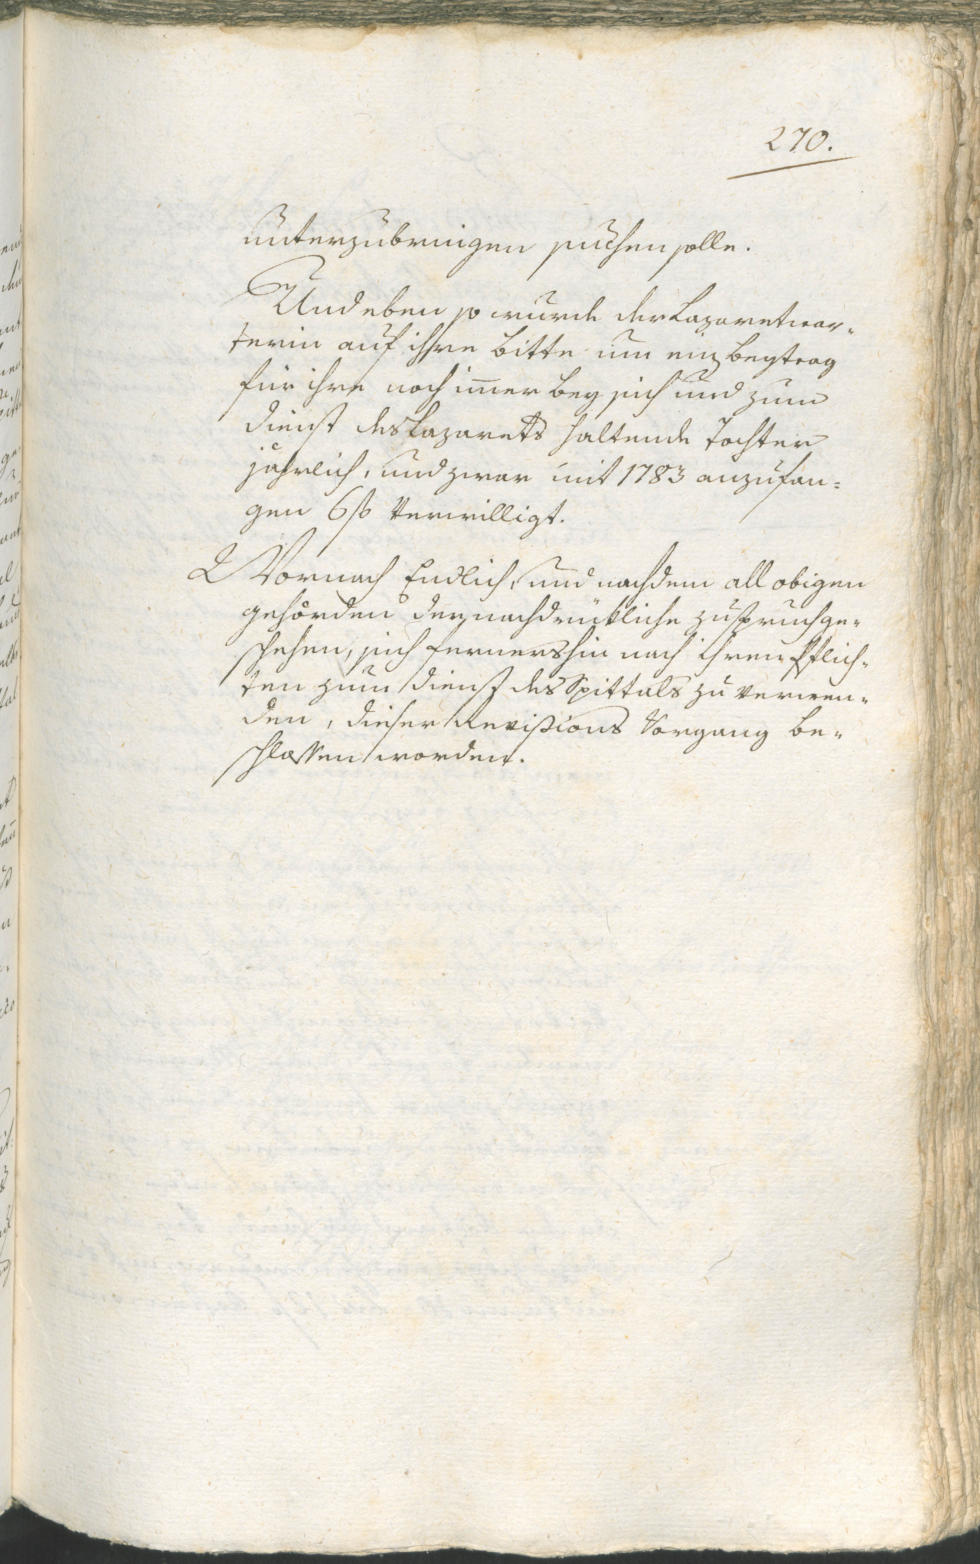 270.
unterzubringen suchen solle.
Und eben so wurde der Lazaretwar-
terin auf ihre Bitte um ein Beytrag
für ihre noch im̅er bey sich und zum
Dienst des Lazarets haltende Tochter
jährlich, und zwar mit 1783 anzufan-
gen 6 f verwilligt.
Wornach Endlich, und nachdem all obigen
gehörden der nachdrükliche zuspruch ge-
schehen, sich fernershin nach ihren Pflich-
ten zum Dienst des Spittals zu verwen-
den, dieser Revisions Vorgang be-
schlossen worden.